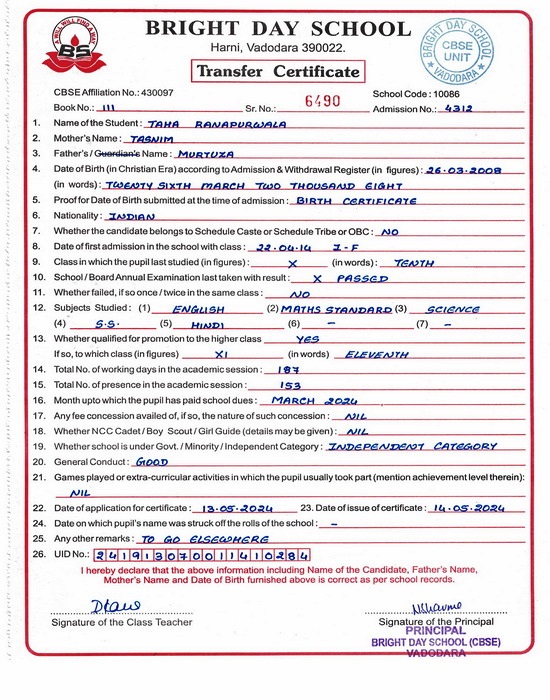 A WILL WILL FIND A WAY
BS
BRIGHT DAY SCHOOL
Harni, Vadodara 390022.
BRIGHT DAY SCHOOL
CBSE
UNIT
VADODARA
Transfer Certificate
CBSE Affiliation No.: 430097 School Code : 10086
Book No.: 111 Sr. No.: 6490 Admission No.: 4312
1. Name of the Student : TAHA RANAPURWALA
2. Mother's Name : TASNIM
3. Father's / Guardian's Name : MURTUZA
4. Date of Birth (in Christian Era) according to Admission & Withdrawal Register (in figures) : 26.03.2008
(in words) : TWENTY SIXTH MARCH TWO THOUSAND EIGHT
5. Proof for Date of Birth submitted at the time of admission : BIRTH CERTIFICATE
6. Nationality : INDIAN
7. Whether the candidate belongs to Schedule Caste or Schedule Tribe or OBC : NO
8. Date of first admission in the school with class : 22.04.14 I-F
9. Class in which the pupil last studied (in figures) : X (in words) : TENTH
10. School / Board Annual Examination last taken with result : X PASSED
11. Whether failed, if so once / twice in the same class : NO
12. Subjects Studied : (1) ENGLISH (2) MATHS STANDARD (3) SCIENCE
(4) S.S. (5) HINDI (6) – (7) –
13. Whether qualified for promotion to the higher class YES
If so, to which class (in figures) XI (in words) ELEVENTH
14. Total No. of working days in the academic session : 187
15. Total No. of presence in the academic session : 153
16. Month upto which the pupil has paid school dues : MARCH 2024
17. Any fee concession availed of, if so, the nature of such concession : NIL
18. Whether NCC Cadet / Boy Scout / Girl Guide (details may be given) : NIL
19. Whether school is under Govt. / Minority / Independent Category : INDEPENDENT CATEGORY
20. General Conduct : GOOD
21. Games played or extra-curricular activities in which the pupil usually took part (mention achievement level therein):
NIL
22. Date of application for certificate : 13.05.2024 23. Date of issue of certificate : 14.05.2024
24. Date on which pupil's name was struck off the rolls of the school : –
25. Any other remarks : TO GO ELSEWHERE
26. UID No.: 241913070011410284
I hereby declare that the above information including Name of the Candidate, Father's Name,
Mother's Name and Date of Birth furnished above is correct as per school records.
Signature of the Class Teacher Signature of the Principal
PRINCIPAL
BRIGHT DAY SCHOOL (CBSE)
VADODARA